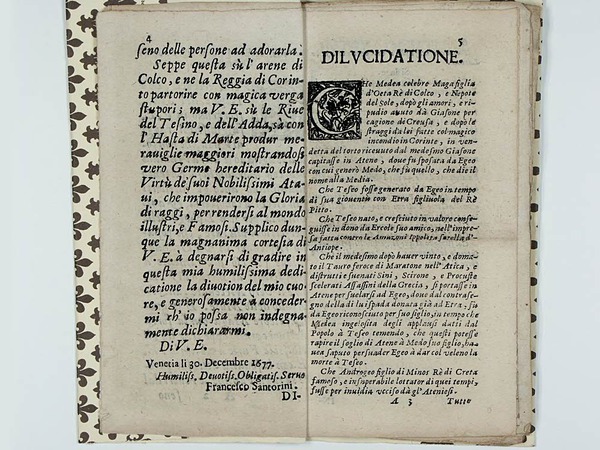 4
seno delle persone ad adorarla.
Seppe questa sù l'arene di
Colco, e ne la Reggia di Corin-
to partorire con magica verga
stupori; ma V. E. sù le Riue
del Tesino, e dell'Adda, sà con
l'Hasta di Marte produr me-
rauiglie maggiori mostrandosi
vero Germe hereditario delle
Virtù de suoi Nobilissimi Ata-
ui, che impouerirono la Gloria
di raggi, per rendersi al mondo
illustri, e Famosi. Supplico dun-
que la magnanima cortesia di
V. E. à degnarsi di gradire in
questa mia humilissima dedi-
catione la diuotion del mio cuo-
re, e generosamente à conceder-
mi ch'io possa non indegna-
mente dichiararmi.
Di V. E.
Venetia li 30. Decembre 1677.
Humiliss. Deuotiss. Obligatis. Seruo
Francesco Santorini.
DI-
5
DILVCIDATIONE.
CHe Medea celebre Maga figlia
d'Oeta Rè di Colco, e Nepote
del Sole, dopò gli amori, e ri-
pudio auuto dà Giasone per
cagione di Creusa, e dopò le
straggi da lei fatte col magico
incendio in Corinto, in ven-
detta del torto riceuuto dal medesmo Giasone
capitasse in Atene, doue fu sposata da Egeo
con cui generò Medo, che fù quello, che die il
nome alla Media.
Che Teseo fosse generato da Egeo in tempo
di sua giouentù con Etra figliuola del Rè
Pitto.
Che Teseo nato, e cresciuto in valore conse-
guisse in dono da Ercole suo amico, nell'impre-
sa fatta contro le Amazoni Ippolita sorella d'
Antiope.
Che il medesimo dopò hauer vinto, e doma-
to il Tauro feroce di Maratone nell'Atica, e
distrutti e suenati Sini, Scirone, e Procuste
scelerati Assassini della Grecia, si portasse in
Atene per suelarsi ad Egeo, doue dal contrase-
gno della di lui spada donata già ad Etra, sia
da Egeo riconosciuto per suo figlio, in tempo che
Medea ingelosita degli applausi datti dal
Popolo à Teseo temendo, che questi potesse
rapire il soglio di Atene à Medo suo figlio, ha-
uea saputo persuader Egeo à dar col veleno la
morte à Teseo.
Che Androgeo figlio di Minos Rè di Creta
famoso, e insuperabile lottator di quei tempi,
fusse per inuidia vcciso dà gl'Ateniesi.
A 3 Tutte